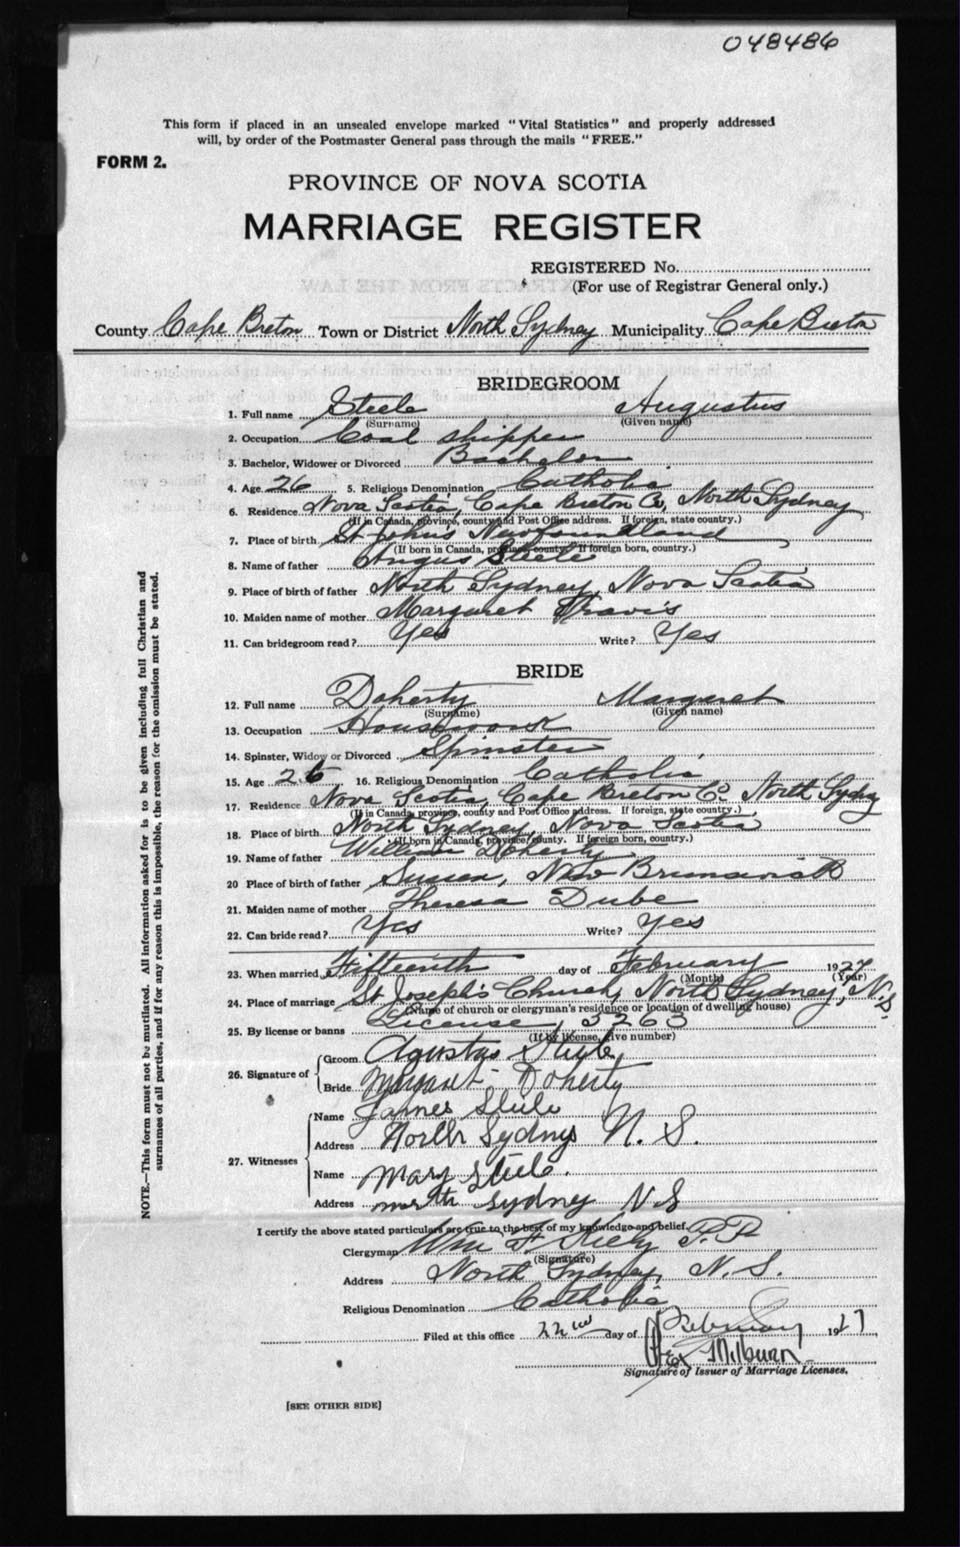 048486
This form if placed in an unsealed envelope marked "Vital Statistics" and properly addressed
will, by order of the Postmaster General pass through the mails "FREE."
FORM 2.
PROVINCE OF NOVA SCOTIA
MARRIAGE REGISTER
REGISTERED No.
(For use of Registrar General only.)
County Cape Breton Town or District North Sydney Municipality Cape Breton
BRIDEGROOM
1. Full name Steele Augustus
(Surname) (Given name)
2. Occupation Coal shipper
3. Bachelor, Widower or Divorced Bachelor
4. Age 26 5. Religious Denomination Catholic
6. Residence Nova Scotia, Cape Breton Co, North Sydney
(If in Canada, province, county and Post Office address. If foreign, state country.)
7. Place of birth St John's Newfoundland
(If born in Canada, province, county. If foreign born, country.)
8. Name of father Angus Steele
9. Place of birth of father North Sydney, Nova Scotia
10. Maiden name of mother Margaret Travis
11. Can bridegroom read? Yes Write? Yes
BRIDE
12. Full name Doherty Margaret
(Surname) (Given name)
13. Occupation Housework
14. Spinster, Widow or Divorced Spinster
15. Age 26 16. Religious Denomination Catholic
17. Residence Nova Scotia, Cape Breton Co. North Sydney
(If in Canada, province, county and Post Office address. If foreign, state country.)
18. Place of birth North Sydney, Nova Scotia
(If born in Canada, province, county. If foreign born, country.)
19. Name of father William Doherty
20 Place of birth of father Sussex, New Brunswick
21. Maiden name of mother Theresa Dube
22. Can bride read? Yes Write? Yes
23. When married Fifteenth day of February 1927
(Month) (Year)
24. Place of marriage St Joseph's Church, North Sydney, N.S.
(Name of church or clergyman's residence or location of dwelling house)
25. By license or banns License, 3263
(If by license, give number)
26. Signature of Groom Agustus Steele
Bride Margaret Doherty
27. Witnesses Name James Steele
Address North Sydney N. S.
Name Mary Steele.
Address north Sydney N.S
I certify the above stated particulars are true to the best of my knowledge and belief.
Clergyman Wm F Kiely P.P.
(Signature)
Address North Sydney, N. S.
Religious Denomination Catholic
Filed at this office 22nd day of February 1927
Milburn
Signature of Issuer of Marriage Licenses.
[SEE OTHER SIDE]
NOTE.—This form must not be mutilated. All information asked for is to be given including full Christian and
surnames of all parties, and if for any reason this is impossible, the reason for the omission must be stated.